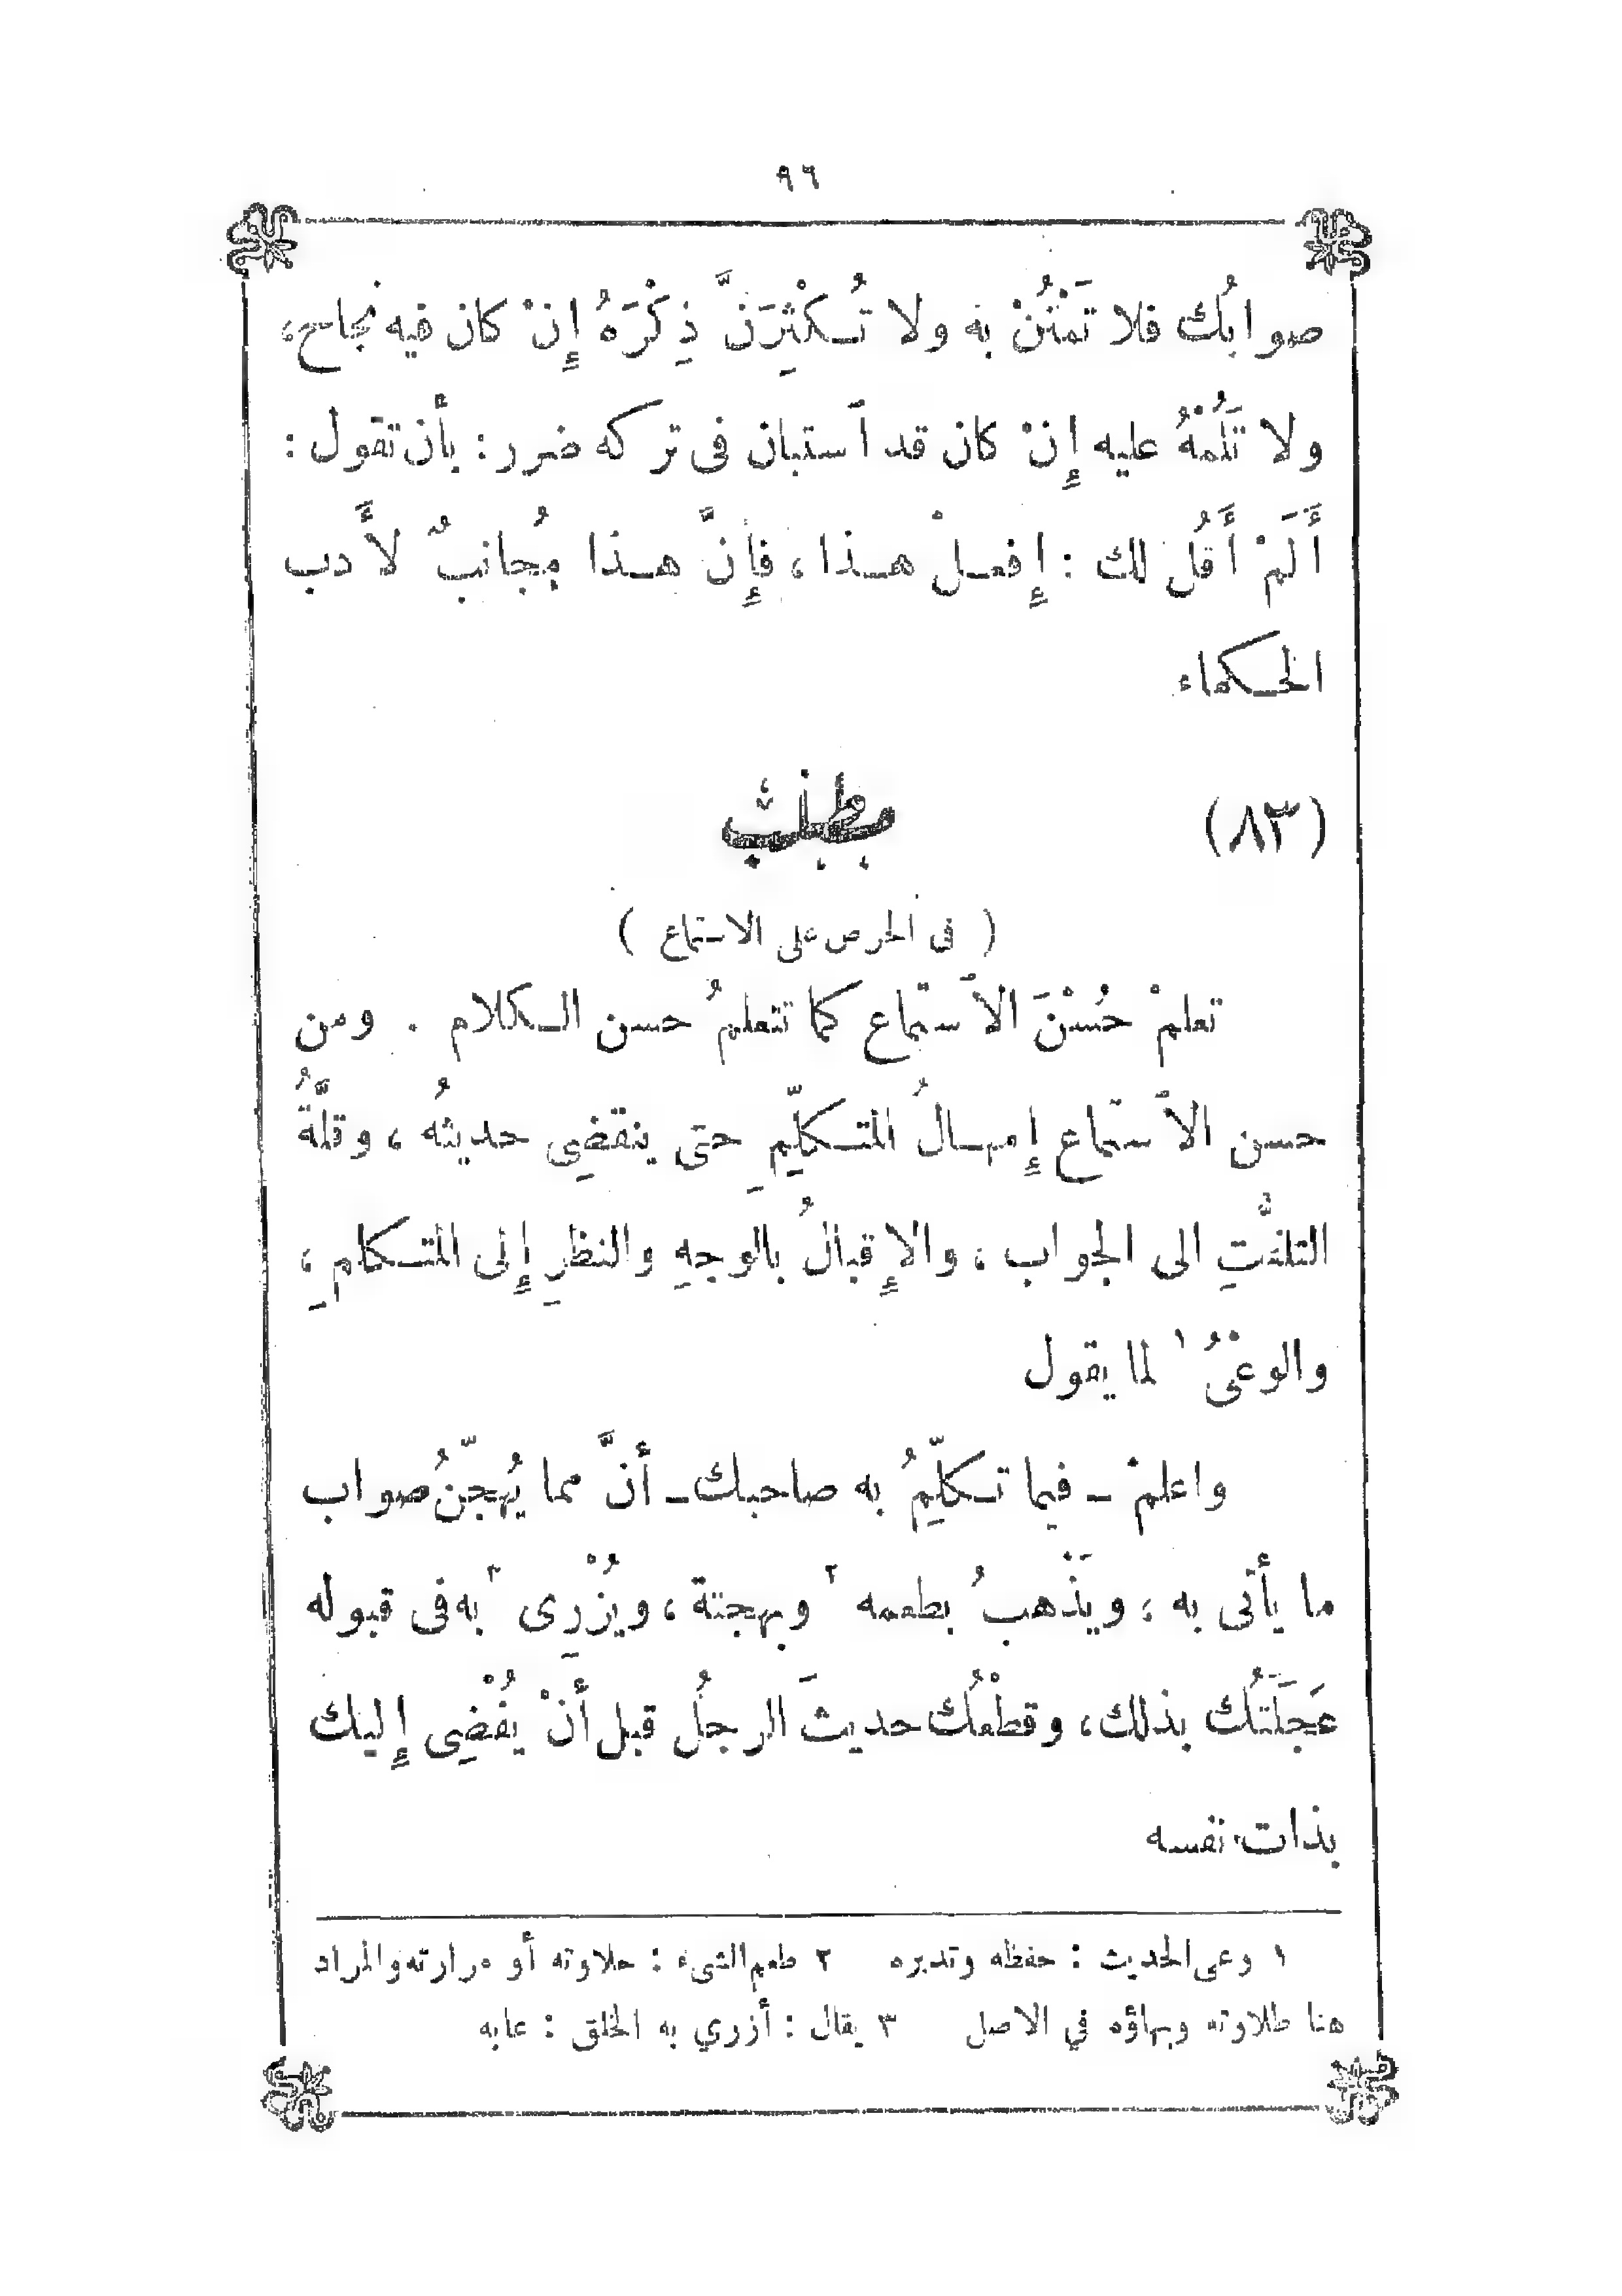 ٩٦
صوابُك فلا تَمْنُنْ به ولا تُكْثِرَنَّ ذِكْرَهُ إِنْ كان فيه نجاح،
ولا تَلُمْهُ عليه إِنْ كان قد ٱستبان فى تركه ضرر: بأن تقول:
أَلَمْ أَقُل لك: إِفعلْ هذا، فإِنَّ هذا مُجانبٌ لأَدب
الحكماء
(٨٣) مطلب
( فى الحرص على الاستماع )
تعلمْ حُسْنَ الٱستماع كما تتعلمُ حسن الكلام . ومن
حسن الٱستماع إِمهالُ المتكلِّمِ حتى ينقضِى حديثُه، وقلَّةُ
التلفُّتِ الى الجواب، والإِقبالُ بالوجهِ والنظرِ إِلى المتكلمِ،
والوعْىُ ١ لما يقول
واعلمْ - فيما تكلِّمُ به صاحبك - أنَّ مما يُهجّنُ صواب
ما يأتى به، ويَذْهبُ بطعمه ٢ وبهجتة، ويُزْرِى ٣ به فى قبوله
عَجَلَتُك بذلك، وقطْعُك حديثَ الرجلُ قبل أنْ يُفْضِى إِليك
بذات نفسه
١ وعى الحديث : حفظه وتدبره ٢ طعم الشىء : حلاوته أو مرارته والمراد
هنا طلاوته وبهاؤه في الاصل ٣ يقال : أزري به الخلق : عابه